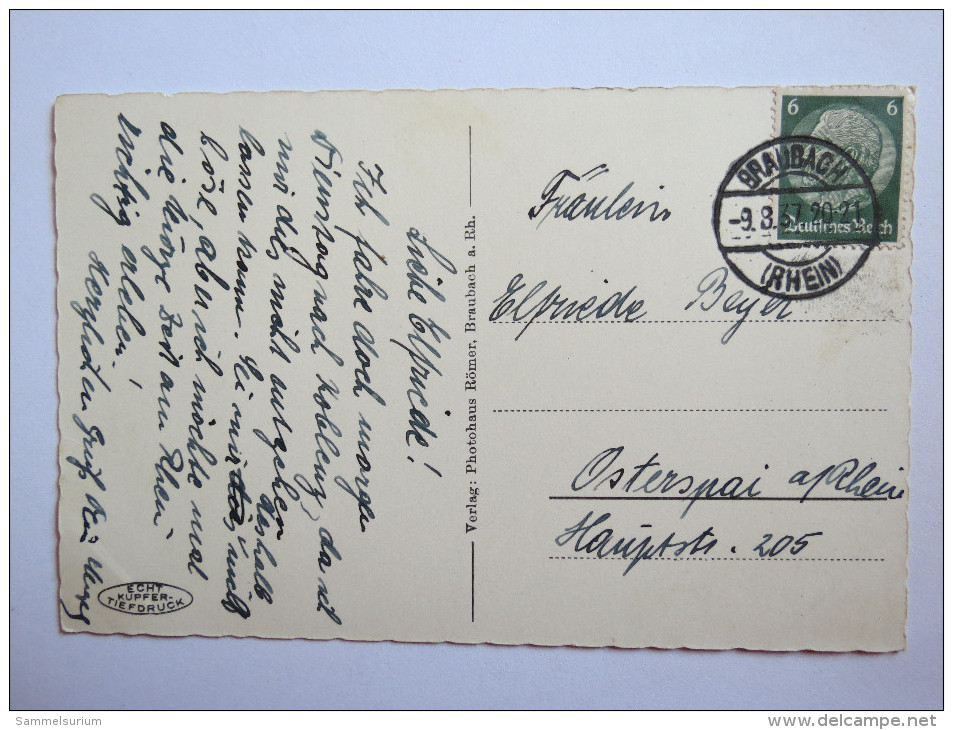 Liebe Elfriede!
Ich fahre doch morgen
Dienstag nach Koblenz, da ich
mir das nicht entgehen
lassen kann. Sei mir deshalb
nicht böse, aber ich möchte mal
die kurze Zeit am Rhein
richtig erleben!
Herzlichen Gruß
ECHT
KUPFER-
TIEFDRUCK
Verlag: Photohaus Römer, Braubach a. Rh.
6 6
Deutsches Reich
BRAUBACH
-9.8.37.20-21
(RHEIN)
Fräulein
Elfriede Beyer
Osterspai a/Rhein
Hauptstr. 205
Sammelsurium
http://www.delcampe.net